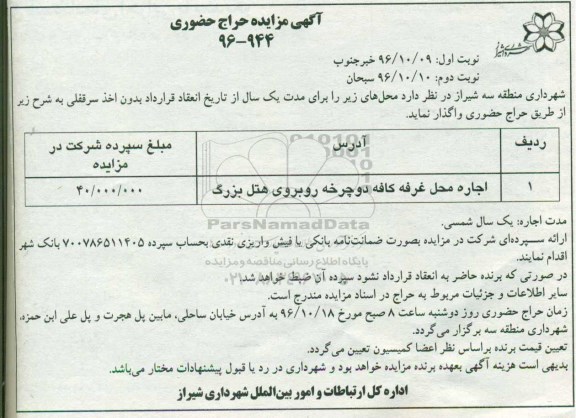 آگهی مزایده حراج حضوری
۹۶-۹۴۴
شهرداری شیراز
نوبت اول: ۹۶/۱۰/۰۹ خبرجنوب
نوبت دوم: ۹۶/۱۰/۱۰ سبحان
شهرداری منطقه سه شیراز در نظر دارد محل‌های زیر را برای مدت یک سال از تاریخ انعقاد قرارداد بدون اخذ سرقفلی به شرح زیر
از طریق حراج حضوری واگذار نماید.
ردیف آدرس مبلغ سپرده شرکت در مزایده
۱ اجاره محل غرفه کافه دوچرخه روبروی هتل بزرگ ۴۰/۰۰۰/۰۰۰
ParsNamadData
پایگاه اطلاع رسانی مناقصه و مزایده
مدت اجاره: یک سال شمسی.
ارائه سپرده‌ای شرکت در مزایده بصورت ضمانت‌نامه بانکی یا فیش واریزی نقدی بحساب سپرده ۷۰۰۷۸۶۵۱۱۴۰۵ بانک شهر
اقدام نمایند.
در صورتی که برنده حاضر به انعقاد قرارداد نشود سپرده آن ضبط خواهد شد.
سایر اطلاعات و جزئیات مربوط به حراج در اسناد مزایده مندرج است.
زمان حراج حضوری روز دوشنبه ساعت ۸ صبح مورخ ۹۶/۱۰/۱۸ به آدرس خیابان ساحلی، مابین پل هجرت و پل علی ابن حمزه،
شهرداری منطقه سه برگزار می‌گردد.
تعیین قیمت برنده براساس نظر اعضا کمیسیون تعیین می‌گردد.
بدیهی است هزینه آگهی بعهده برنده مزایده خواهد بود و شهرداری در رد یا قبول پیشنهادات مختار می‌باشد.
اداره کل ارتباطات و امور بین‌الملل شهرداری شیراز